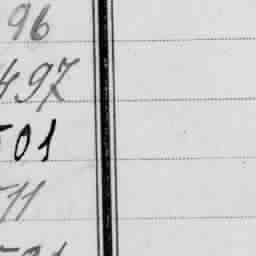 96
497
501
511
521